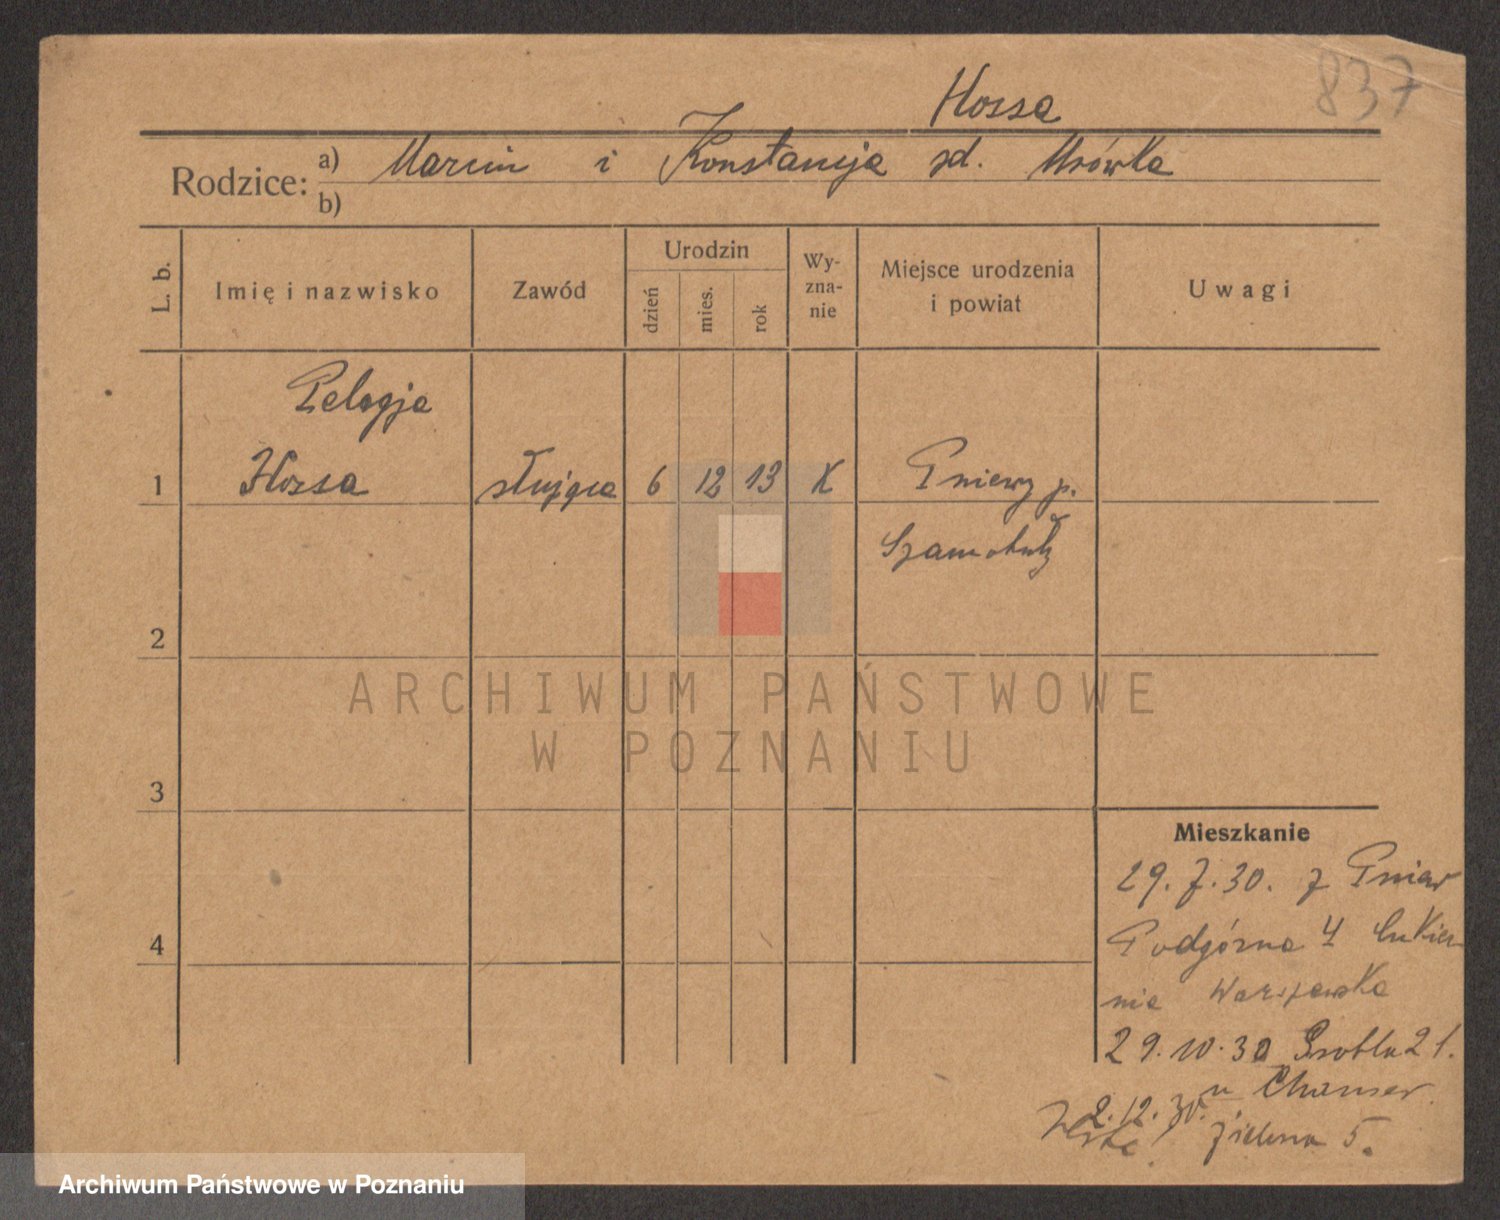 837
Hossa
Rodzice: a) Marcin i Konstancja zd. Mrówka
b)
L. b. Imię i nazwisko Zawód Urodzin dzień mies. rok Wy-zna-nie Miejsce urodzenia i powiat Uwagi
Pelagja
1 Hossa służąca 6 12 13 K Pniewy p.
Szamotuły
2
3
4
Mieszkanie
29.7.30. z Pniew
Podgórna 4 Cukier-
nia Warszawska
29.10.30 Grobla 21.
u
2.12.30. Zielona 5.
ARCHIWUM PAŃSTWOWE
W POZNANIU
Archiwum Państwowe w Poznaniu